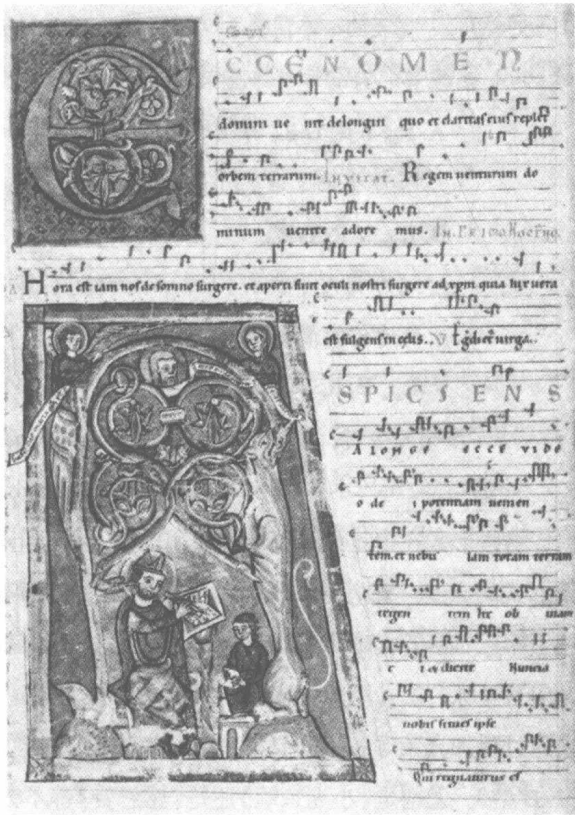 CCE NOMEN
domini ue nit delonginquo et claritas eius replet
orbem terrarum. INVITAT. Regem uenturum do
minum uenite adore mus. IN PRIMO Noct'no
Hora est iam nos de somno surgere. et aperti sunt oculi nostri surgere ad xpm quia lux uera
est fulgens in celis. V Egrediet' uirga.
SPICIENS
ALONGE ECCE VIDE
o de i potentiam uenien
tem. et nebu lam totam terram
tegen tem Ite ob uiam
e i et dicite Nuncia
nobis si tu es ipse
Qui regnaturus es